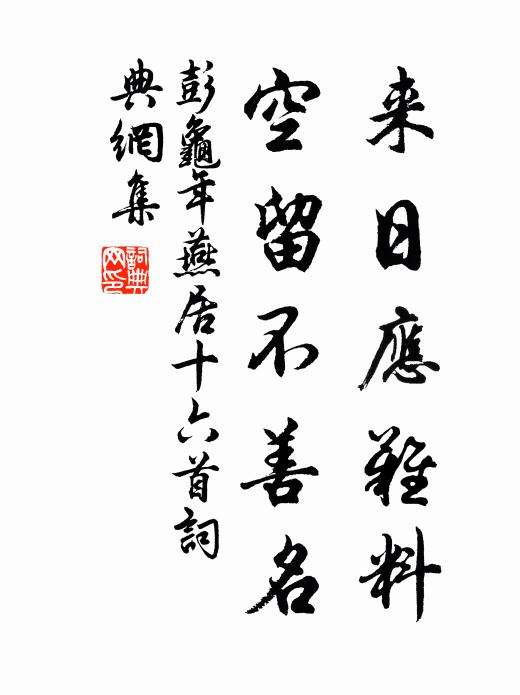 来日應難料
空留不善名
彭龜年燕居十六首詞
典網集
詞典
网印